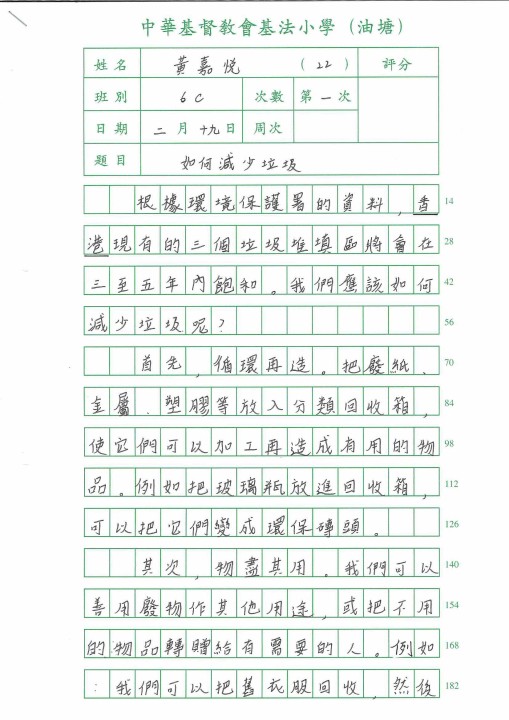 中華基督教會基法小學（油塘）
姓名 黃嘉悅 （22） 評分
班別 6C 次數 第一次
日期 二月十九日 周次
題目 如何減少垃圾
根據環境保護署的資料，香 14
港現有的三個垃圾堆填區將會在 28
三至五年內飽和。我們應該如何 42
減少垃圾呢？ 56
首先，循環再造。把廢紙、 70
金屬、塑膠等放入分類回收箱， 84
使它們可以加工再造成有用的物 98
品。例如把玻璃瓶放進回收箱， 112
可以把它們變成環保磚頭。 126
其次，物盡其用。我們可以 140
善用廢物作其他用途，或把不用 154
的物品轉贈給有需要的人。例如 168
：我們可以把舊衣服回收，然後 182